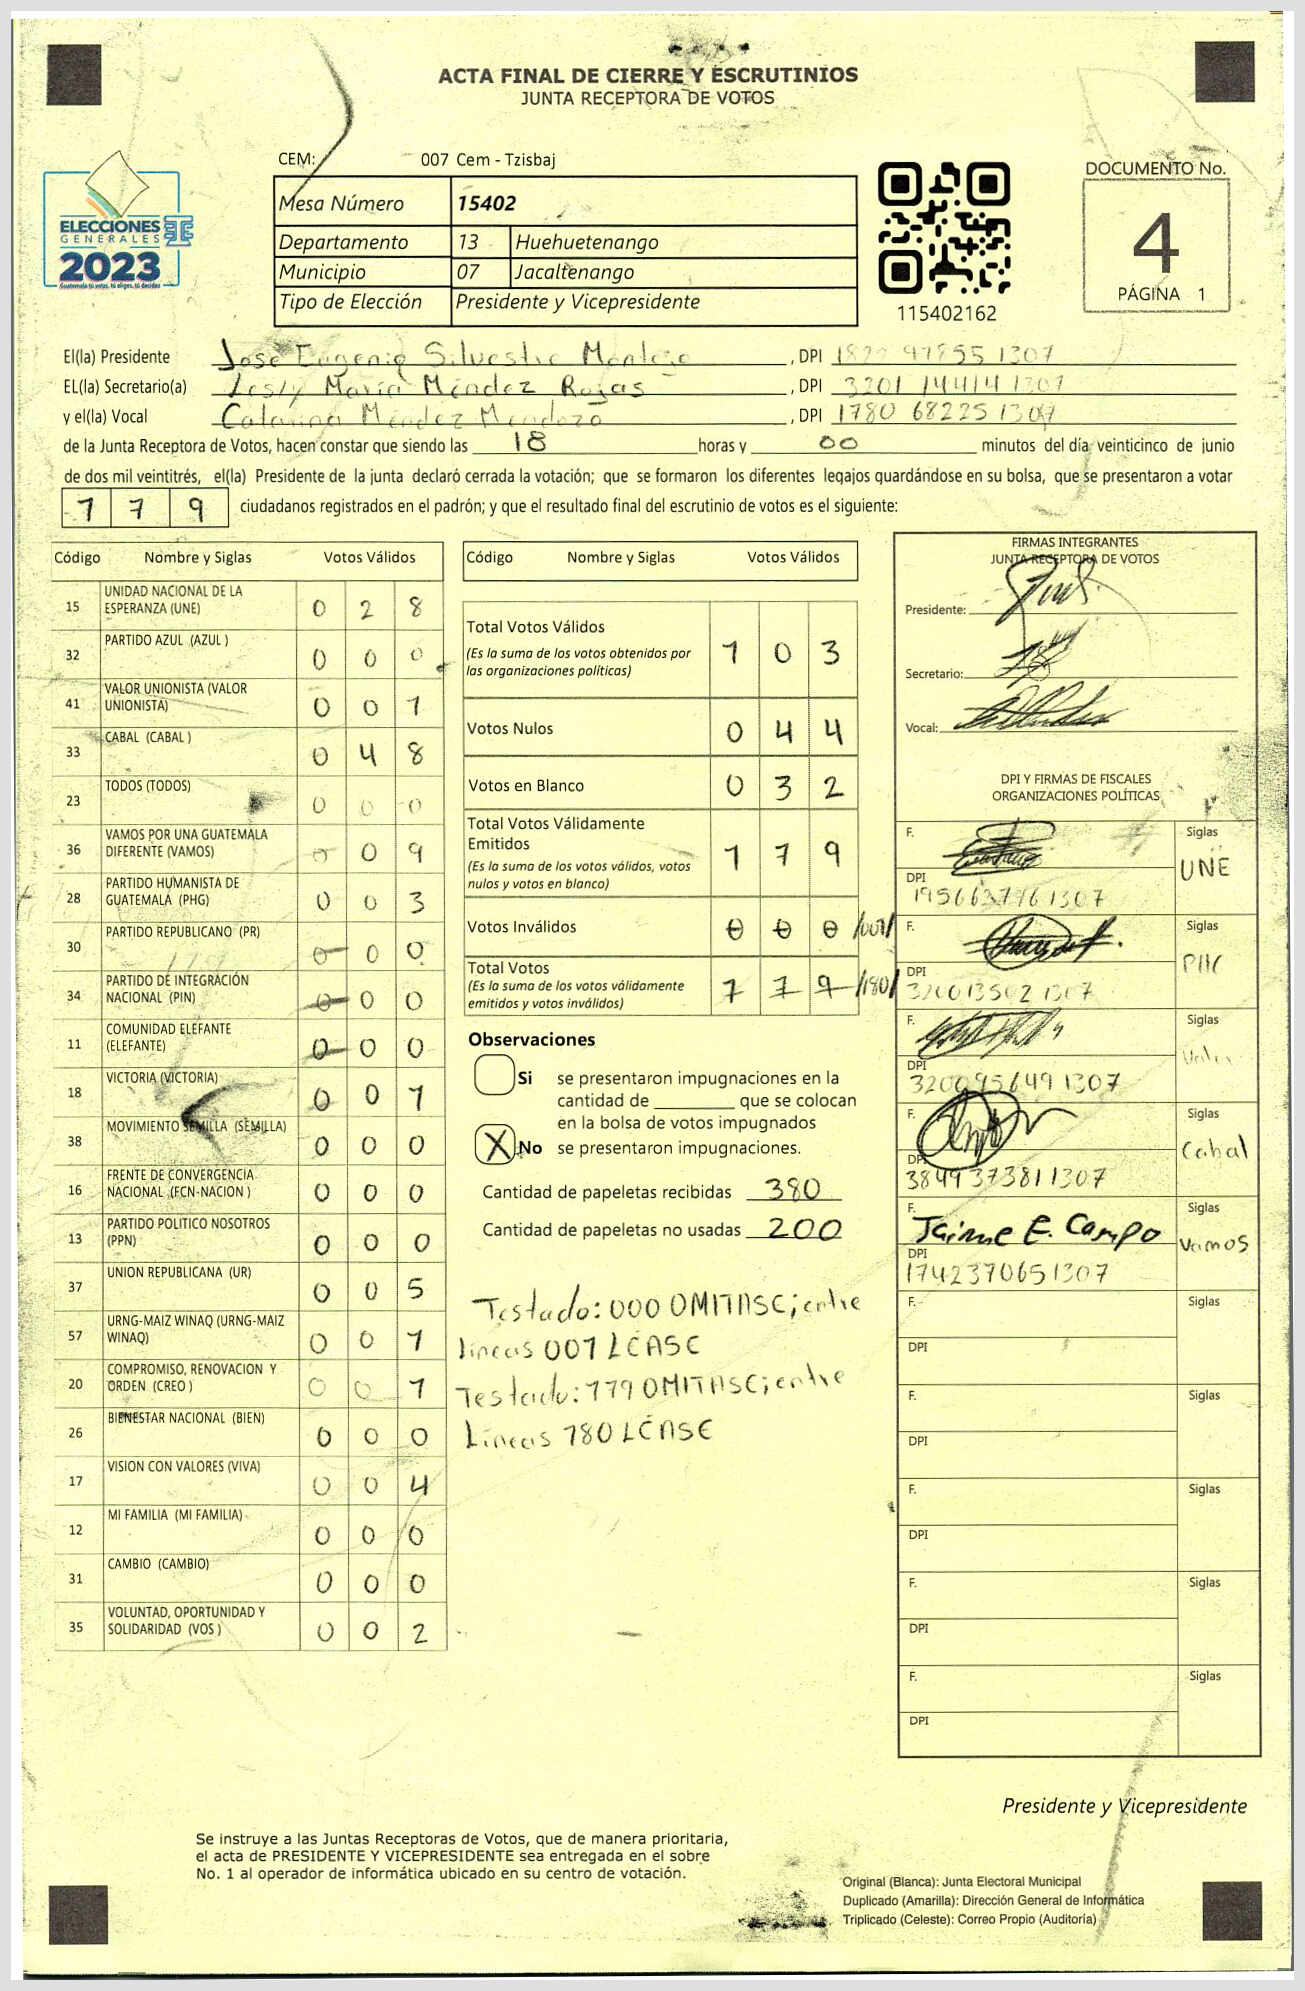 ACTA FINAL DE CIERRE Y ESCRUTINIOS
JUNTA RECEPTORA DE VOTOS
CEM: 007 Cem - Tzisbaj
ELECCIONES
GENERALES
2023
Guatemala tú votas, tú eliges, tú decides
Mesa Número 15402
Departamento 13 Huehuetenango
Municipio 07 Jacaltenango
Tipo de Elección Presidente y Vicepresidente
115402162
DOCUMENTO No.
4
PÁGINA 1
El(la) Presidente José Eugenio Silvestre Montejo, DPI 1822 97855 1307
EL(la) Secretario(a) Lesly María Méndez Rojas, DPI 3201 14414 1307
y el(la) Vocal Catarina Méndez Mendoza, DPI 1780 68225 1307
de la Junta Receptora de Votos, hacen constar que siendo las 18 horas y 00 minutos del día veinticinco de junio
de dos mil veintitrés, el(la) Presidente de la junta declaró cerrada la votación; que se formaron los diferentes legajos guardándose en su bolsa, que se presentaron a votar
179 ciudadanos registrados en el padrón; y que el resultado final del escrutinio de votos es el siguiente:
Código Nombre y Siglas Votos Válidos
15 UNIDAD NACIONAL DE LA ESPERANZA (UNE) 0 2 8
32 PARTIDO AZUL (AZUL ) 0 0 0
41 VALOR UNIONISTA (VALOR UNIONISTA) 0 0 1
33 CABAL (CABAL ) 0 4 8
23 TODOS (TODOS) 0 0 0
36 VAMOS POR UNA GUATEMALA DIFERENTE (VAMOS) 0 0 9
28 PARTIDO HUMANISTA DE GUATEMALA (PHG) 0 0 3
30 PARTIDO REPUBLICANO (PR) 0 0 0
34 PARTIDO DE INTEGRACIÓN NACIONAL (PIN) 0 0 0
11 COMUNIDAD ELEFANTE (ELEFANTE) 0 0 0
18 VICTORIA (VICTORIA) 0 0 1
38 MOVIMIENTO SEMILLA (SEMILLA) 0 0 0
16 FRENTE DE CONVERGENCIA NACIONAL (FCN-NACION ) 0 0 0
13 PARTIDO POLITICO NOSOTROS (PPN) 0 0 0
37 UNION REPUBLICANA (UR) 0 0 5
57 URNG-MAIZ WINAQ (URNG-MAIZ WINAQ) 0 0 1
20 COMPROMISO, RENOVACION Y ORDEN (CREO ) 0 0 1
26 BIENESTAR NACIONAL (BIEN) 0 0 0
17 VISION CON VALORES (VIVA) 0 0 4
12 MI FAMILIA (MI FAMILIA) 0 0 0
31 CAMBIO (CAMBIO) 0 0 0
35 VOLUNTAD, OPORTUNIDAD Y SOLIDARIDAD (VOS ) 0 0 2
Código Nombre y Siglas Votos Válidos
Total Votos Válidos 1 0 3
(Es la suma de los votos obtenidos por
las organizaciones políticas)
Votos Nulos 0 4 4
Votos en Blanco 0 3 2
Total Votos Válidamente
Emitidos 1 7 9
(Es la suma de los votos válidos, votos
nulos y votos en blanco)
Votos Inválidos 0 0 0 /001/
Total Votos 1 7 9 /180/
(Es la suma de los votos válidamente
emitidos y votos inválidos)
Observaciones
Si se presentaron impugnaciones en la
cantidad de ________ que se colocan
en la bolsa de votos impugnados
X No se presentaron impugnaciones.
Cantidad de papeletas recibidas 380
Cantidad de papeletas no usadas 200
Testado: 000 OMITASE; entre
líneas 001 LÉASE
Testado: 179 OMITASE; entre
Líneas 180 LÉASE
FIRMAS INTEGRANTES
JUNTA RECEPTORA DE VOTOS
Presidente:
Secretario:
Vocal:
DPI Y FIRMAS DE FISCALES
ORGANIZACIONES POLÍTICAS
F. Siglas
UNE
DPI
1956637961307
F. Siglas
PHG
DPI
320013502 1307
F. Siglas
Valor
DPI
320095649 1307
F. Siglas
Cabal
DPI
3849373811307
F. Siglas
Jaime E. Campo
Vamos
DPI
1742370651307
F. Siglas
DPI
F. Siglas
DPI
F. Siglas
DPI
F. Siglas
DPI
F. Siglas
DPI
Presidente y Vicepresidente
Se instruye a las Juntas Receptoras de Votos, que de manera prioritaria,
el acta de PRESIDENTE Y VICEPRESIDENTE sea entregada en el sobre
No. 1 al operador de informática ubicado en su centro de votación.
Original (Blanca): Junta Electoral Municipal
Duplicado (Amarilla): Dirección General de Informática
Triplicado (Celeste): Correo Propio (Auditoría)